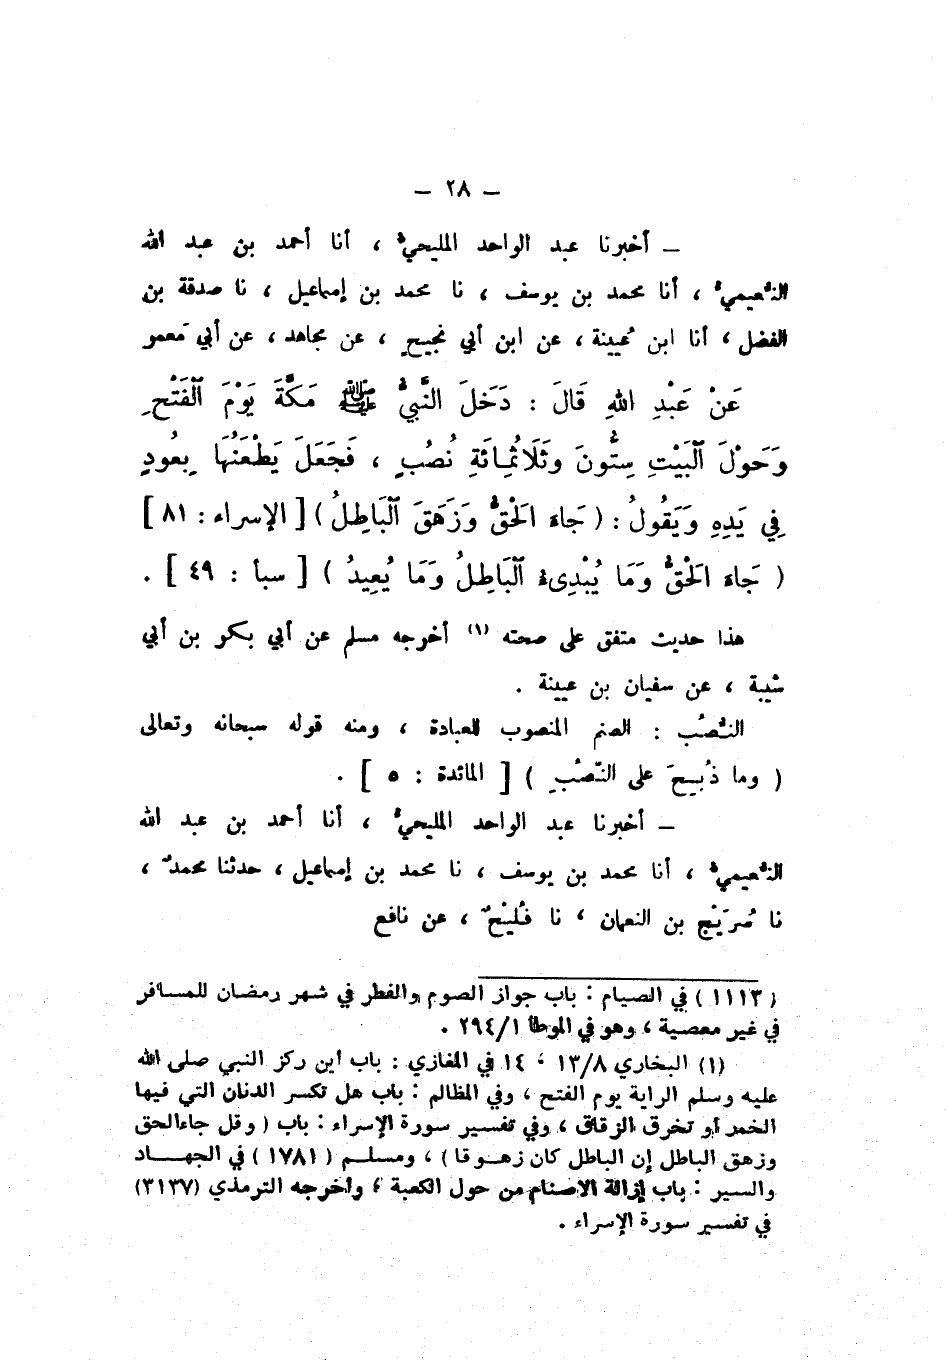 – ٢٨ –
– أخبرنا عبد الواحد المليحيُّ ، أنا أحمد بن عبد الله
النُّعيميُّ ، أنا محمد بن يوسف ، نا محمد بن إسماعيل ، نا صدقة بن
الفضل ، أنا ابن عُيينة ، عن ابن أبي نجيحٍ ، عن مجاهد ، عن أبي مَعمر
عَنْ عَبْدِ اللهِ قَالَ : دَخَلَ النَّبِيُّ ﷺ مَكَّةَ يَوْمَ ٱلْفَتْحِ
وَحَوْلَ ٱلْبَيْتِ سِتُّونَ وَثَلَاثُمِائَةِ نُصُبٍ ، فَجَعَلَ يَطْعَنُهَا بِعُودٍ
فِي يَدِهِ وَيَقُولُ : ( جَاءَ الْحَقُّ وَزَهَقَ ٱلْبَاطِلُ ) [ الإسراء : ٨١ ]
( جَاءَ الْحَقُّ وَمَا يُبْدِىءُ ٱلْبَاطِلُ وَمَا يُعِيدُ ) [ سبأ : ٤٩ ] .
هذا حديث متفق على صحته (١) أخرجه مسلم عن أبي بكر بن أبي
شيبة ، عن سفيان بن عيينة .
النُّصُب : الصنم المنصوب للعبادة ، ومنه قوله سبحانه وتعالى
( وما ذُبِحَ على النّصُبِ ) [ المائدة : ٥ ] .
– أخبرنا عبد الواحد المليحيُّ ، أنا أحمد بن عبد الله
النُّعيميُّ ، أنا محمد بن يوسف ، نا محمد بن إسماعيل ، حدثنا محمدٌ ،
نا سُرَيْج بن النعمان ، نا فُلَيْحٌ ، عن نافع
( ١١١٣ ) في الصيام : باب جواز الصوم والفطر في شهر رمضان للمسافر
في غير معصية ، وهو في الموطأ ٢٩٤/١ .
(١) البخاري ١٣/٨ ، ١٤ في المغازي : باب اين ركز النبي صلى الله
عليه وسلم الراية يوم الفتح ، وفي المظالم : باب هل تكسر الدنان التي فيها
الخمر أو تخرق الزقاق ، وفي تفسير سورة الإسراء : باب ( وقل جاء الحق
وزهق الباطل إن الباطل كان زهوقا ) ، ومسلم ( ١٧٨١ ) في الجهاد
والسير : باب إزالة الاصنام من حول الكعبة ، وأخرجه الترمذي (٣١٣٧)
في تفسير سورة الإسراء .